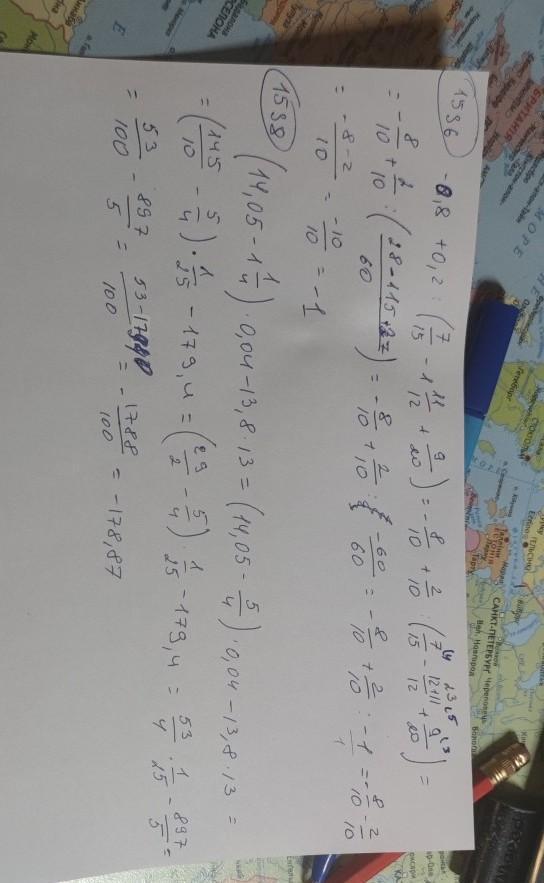 1536 -0,8 + 0,2 : (7/15 - 1 11/12 + 9/20) = -8/10 + 2/10 : (7/15 - 12+11/12 + 9/20) =
= -8/10 + 2/10 : (28-115+27/60) = -8/10 + 2/10 : -60/60 = -8/10 + 2/10 : -1/1 = -8/10 - 2/10
= -8-2/10 = -10/10 = -1
1538 (14,05 - 1 1/4) · 0,04 - 13,8 · 13 = (14,05 - 5/4) · 0,04 - 13,8 · 13 =
= (145/10 - 5/4) · 1/25 - 179,4 = (29/2 - 5/4) · 1/25 - 179,4 = 53/4 · 1/25 - 897/5 =
= 53/100 - 897/5 = 53-17940/100 = -1788/100 = -178,87
МОРЕ
САНКТ-ПЕТЕРБУРГ
Череповец
Вел. Новгород